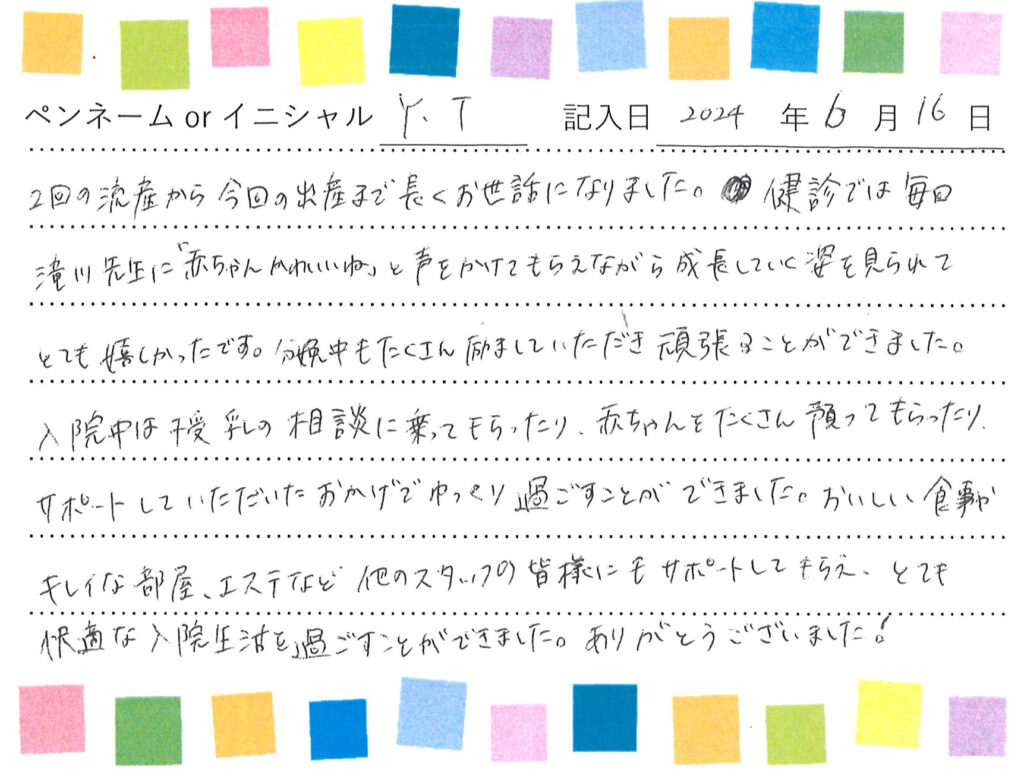 ペンネーム or イニシャル Y.T 記入日 2024 年 6 月 16 日
2回の流産から今回の出産まで長くお世話になりました。健診では毎回
滝川先生に「赤ちゃんかわいいね」と声をかけてもらえながら成長していく姿を見られて
とても嬉しかったです。分娩中もたくさん励ましていただき頑張ることができました。
入院中は授乳の相談に乗ってもらったり、赤ちゃんをたくさん預ってもらったり、
サポートしていただいたおかげでゆっくり過ごすことができました。おいしい食事や
キレイな部屋、エステなど他のスタッフの皆様にもサポートしてもらえ、とても
快適な入院生活を過ごすことができました。ありがとうございました!